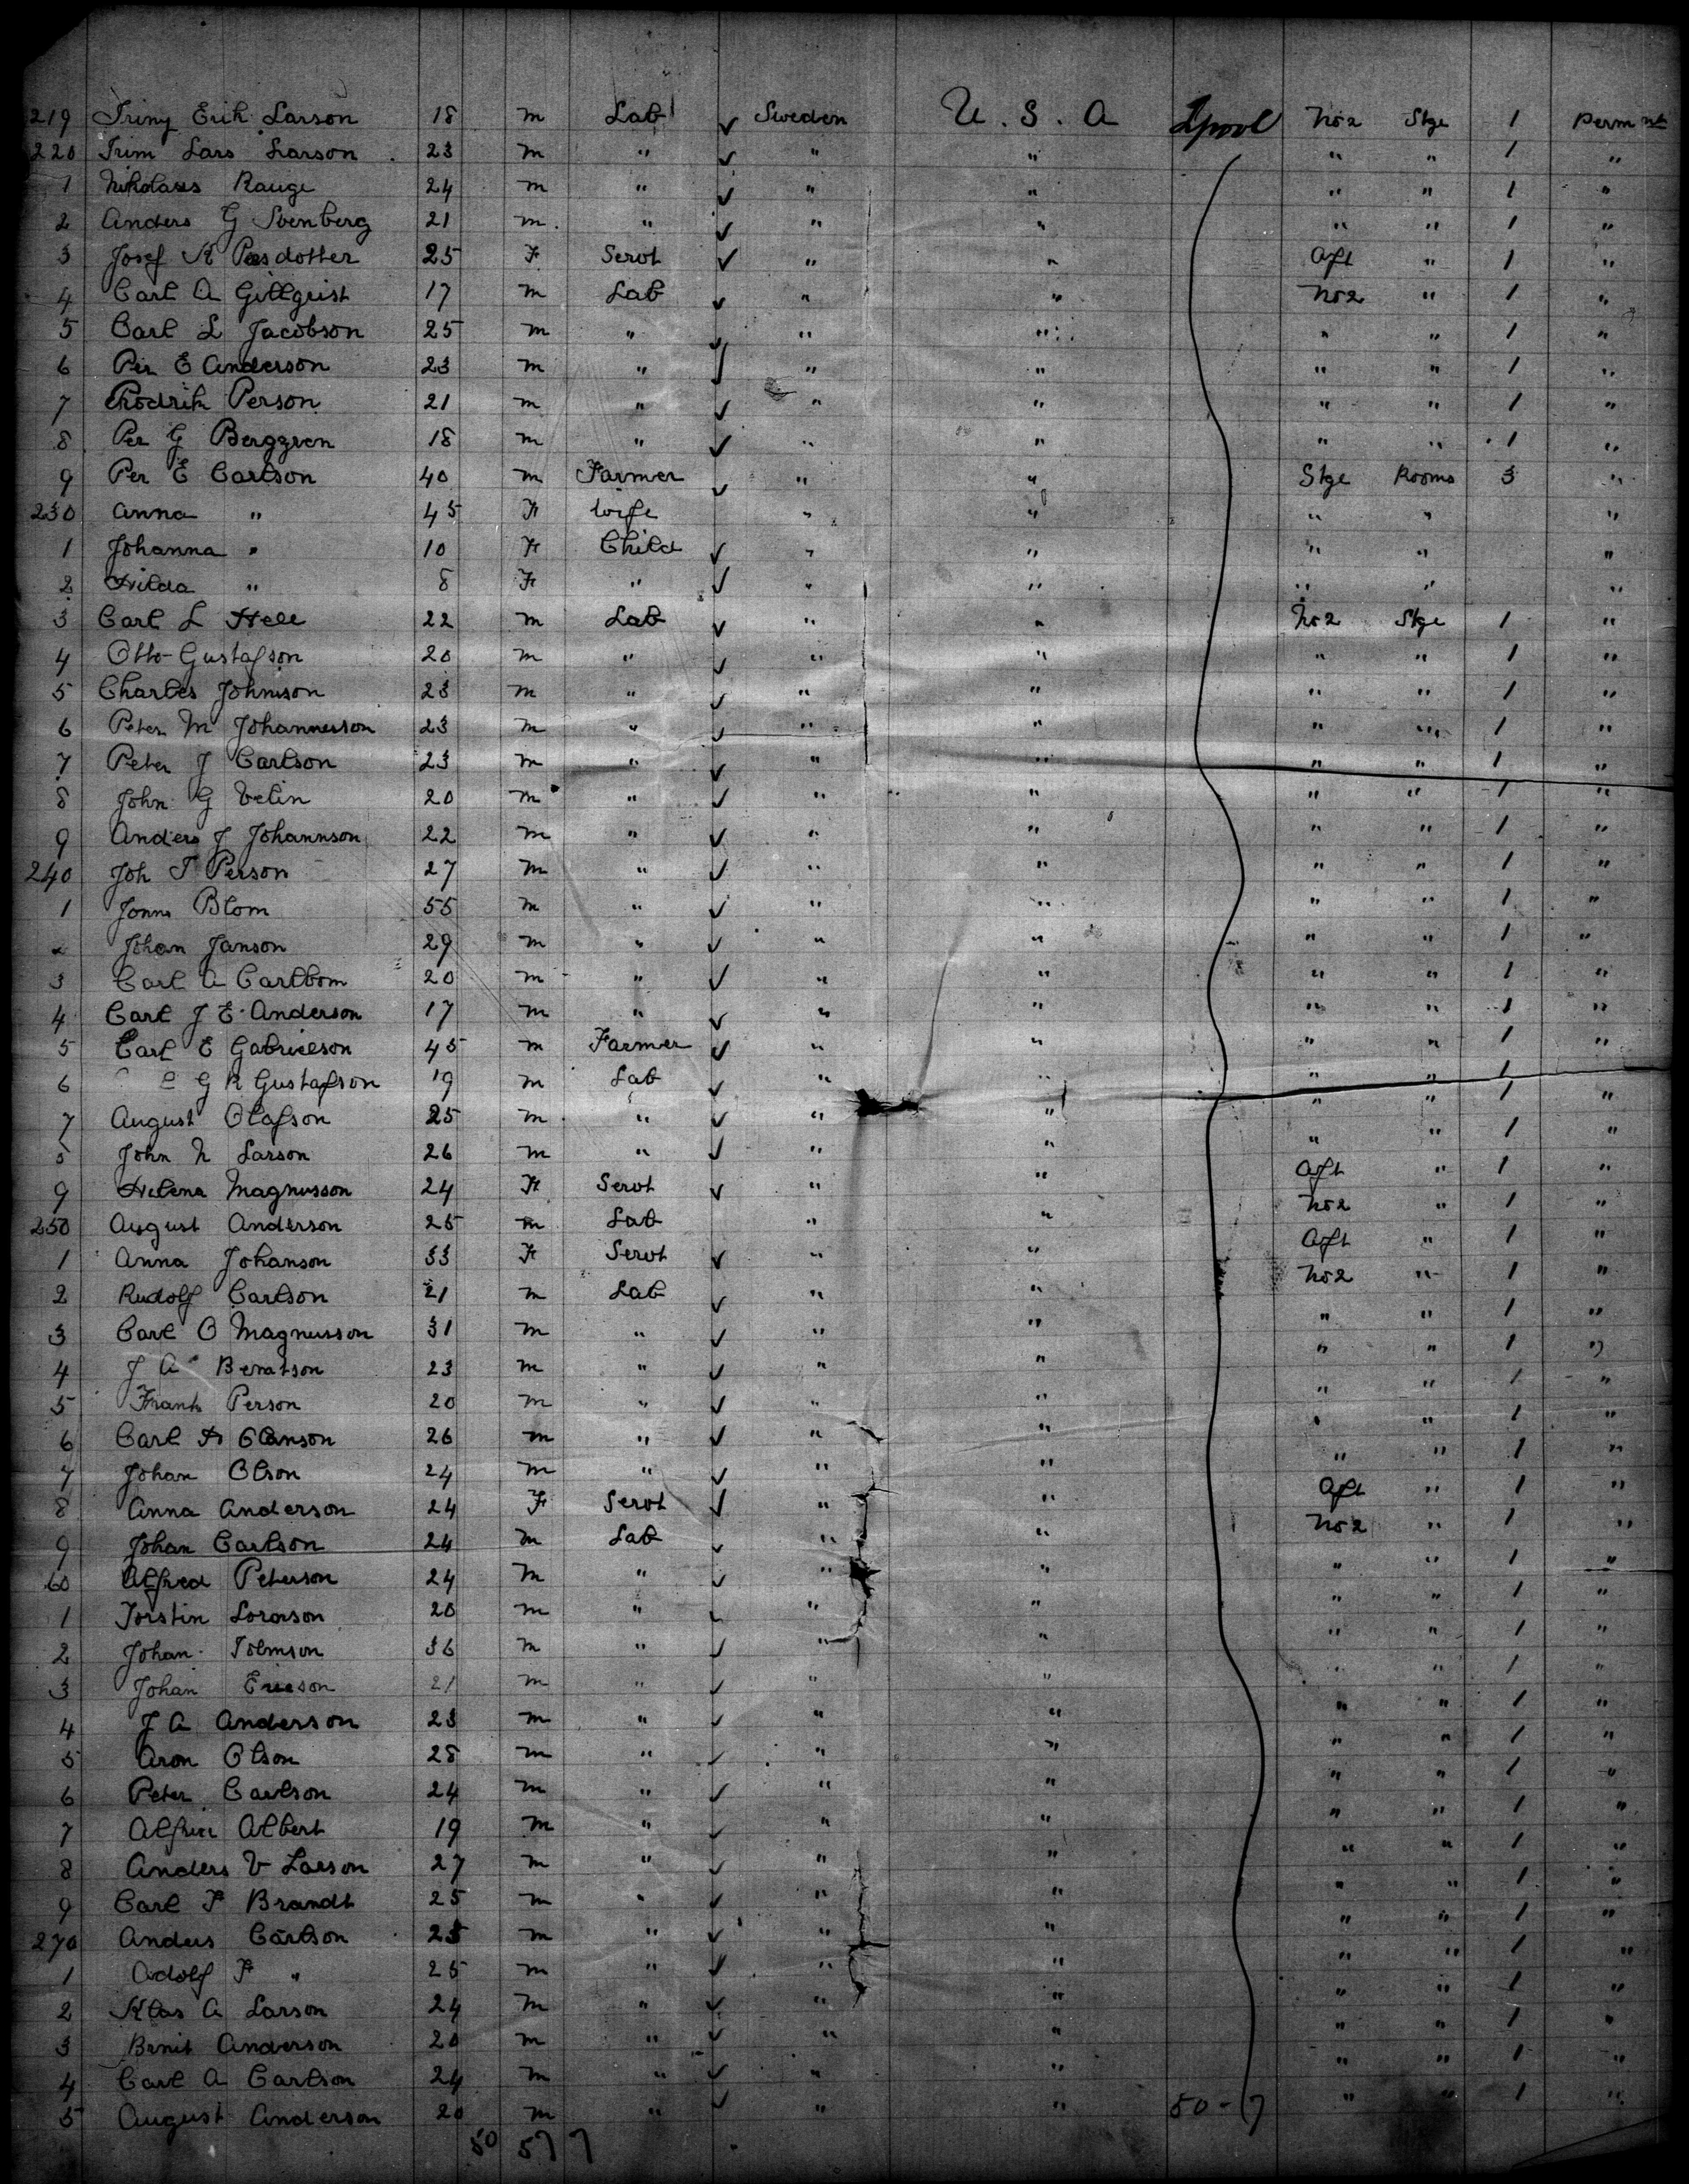 219 Erik Larson 18 m Lab Sweden U.S.A Lpool No 2 Stge 1 Permnt
220 Lars Larson 23 m " " " " " 1 "
1 Rauge 24 m " " " " " 1 "
2 Anders G Svenberg 21 m " " " " " 1 "
3 Josef K Persdotter 25 F Servt " " Aft " 1 "
4 Carl A Gillgrist 17 m Lab " " No 2 " 1 "
5 Carl L Jacobson 25 m " " " " " 1 "
6 Per E Anderson 23 m " " " " " 1 "
7 Person 21 m " " " " " 1 "
8 Per G Berggren 18 m " " " " " 1 "
9 Per E Carlson 40 m Farmer " " Stge Rooms 3 "
230 Anna " 45 F Wife " " " " "
1 Johanna " 10 F Child " " " " "
2 Hilda " 8 F " " " " " "
3 Carl L Hell 22 m Lab " " No 2 Stge 1 "
4 Otto Gustafson 20 m " " " " " 1 "
5 Charles Johnson 23 m " " " " " 1 "
6 Peter M Johannesson 23 m " " " " " 1 "
7 Peter J Carlson 23 m " " " " " 1 "
8 John G Velin 20 m " " " " " 1 "
9 Anders J Johannson 22 m " " " " " 1 "
240 Joh T Person 27 m " " " " " 1 "
1 Jonns Blom 55 m " " " " " 1 "
2 Johan Janson 29 m " " " " " 1 "
3 Carl A Carlbom 20 m " " " " " 1 "
4 Carl J E Anderson 17 m " " " " " 1 "
5 Carl E Gabrielson 45 m Farmer " " " " 1 "
6 G R Gustafson 19 m Lab " " " " 1
7 August Olafson 25 m " " " " 1 "
8 John N Larson 26 m " " " " " 1 "
9 Helena Magnusson 24 F Servt " " Aft " 1 "
250 August Anderson 25 m Lab " " No 2 " 1 "
1 Anna Johanson 33 F Servt " " Aft " 1 "
2 Rudolf Carlson 21 m Lab " " No 2 " 1 "
3 Carl O Magnusson 31 m " " " " " 1 "
4 J A Berntson 23 m " " " " " 1 "
5 Frank Person 20 m " " " " " 1 "
6 Carl A 26 m " " " " " 1 "
7 Johan Olson 24 m " " " " " 1 "
8 Anna Anderson 24 F Servt " " Aft " 1 "
9 Johan Carlson 24 m Lab " " No 2 " 1 "
60 Alfred Peterson 24 m " " " " " 1 "
1 Torstin 20 m " " " " " 1 "
2 Johan Tolmson 36 m " " " " " 1 "
3 Johan Ericson 21 m " " " " " 1 "
4 J A Anderson 23 m " " " " " 1 "
5 Aron Olson 28 m " " " " " 1 "
6 Peter Carlson 24 m " " " " " 1 "
7 Albert 19 m " " " " " 1 "
8 Anders V Larson 27 m " " " " " 1 "
9 Carl F Brandt 25 m " " " " " 1 "
270 Anders Carlson 25 m " " " " " 1 "
1 Adolf F " 25 m " " " " " 1 "
2 Klas A Larson 24 m " " " " " 1 "
3 Anderson 20 m " " " " " 1 "
4 Carl A Carlson 24 m " " " " " 1 "
5 August Anderson 20 m " " " 50-7 " " 1 "
50 57 7